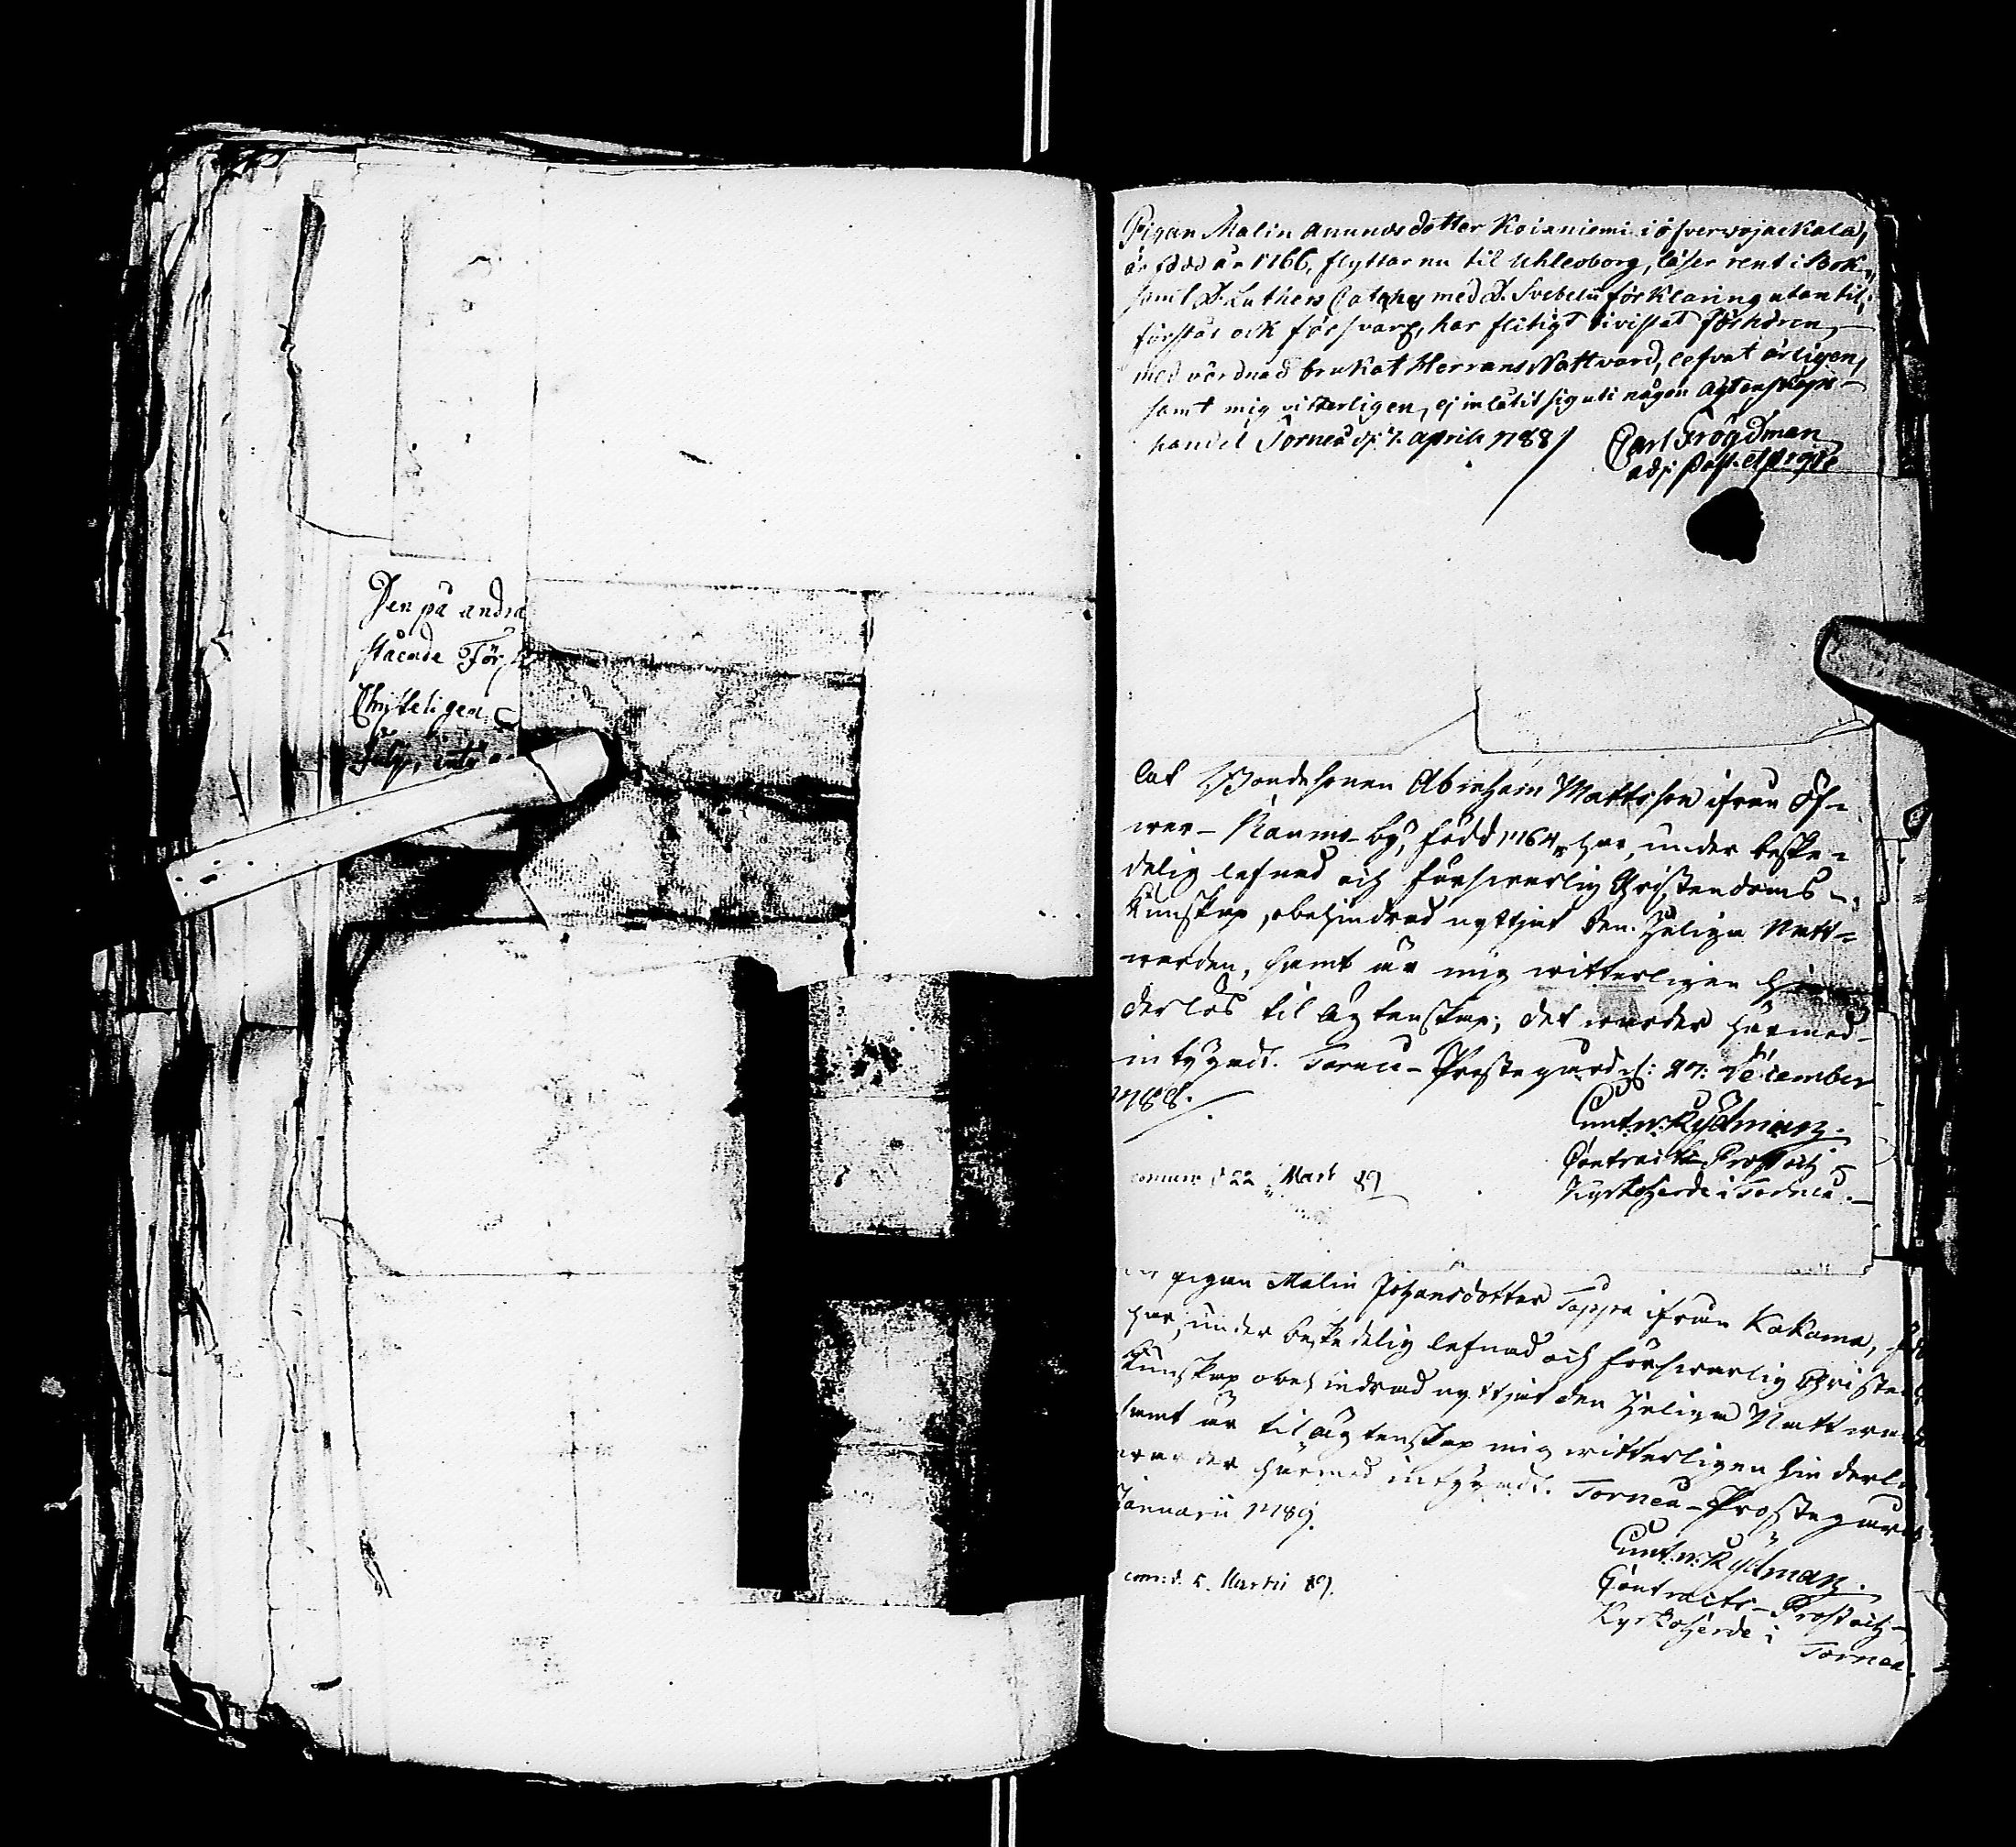 Den på andra
stående För
Christeligen
July, intÿ
Pigan Malin Anundsdotter Koianiemi i öfvervojackala,
är född år 1766, flyttar nu til Uhleoborg, läser rent i Bok,
samt D. Luthers Cateches med D. Svebelii förklaring utantil,
förstår ock försvarl, har flitigt bivistat förhören,
med vördnad brukat Herrans Nattvard, lefvat ärligen,
samt mig vitterligen, ej inlåtit sig uti någon ägtenskaps-
handel Torneå d. 7. aprilis 1788
Carl Frögdman
adj: Past.
at Bondesonen Abraham Mattsson ifrån Öf-
wer-Raumo-by, född 1764, har, under beske-
delig lefnad och förswarlig Christendoms-
kunskap, obehindrad nyttjat den Heliga Natt-
warden, samt är mig witterligen hin-
derlös til ägtenskap; det warder härmed
intygadt. Torneå-Prostegård d: 27: December
1788.
Cunt. W: Rydman.
Contracts-Prost och
Kyrkoherde i Torneå.
commun: d 22 Mart 89
pigan Malin Johansdotter Tappa ifrån Kakama,
har, under beskedelig lefnad och förswarlig Christen
kunskap obehindrad nyttjat den Heliga Nattward
samt är til ägtenskap mig witterligen hinderlö
warder härmed intygadt. Torneå-Prostegård
Januarii 1789.
Cunt. W: Rydman.
Contracts-Prost och
Kyrkoherde i
Torneå.
com: d. 5. Martii 89.